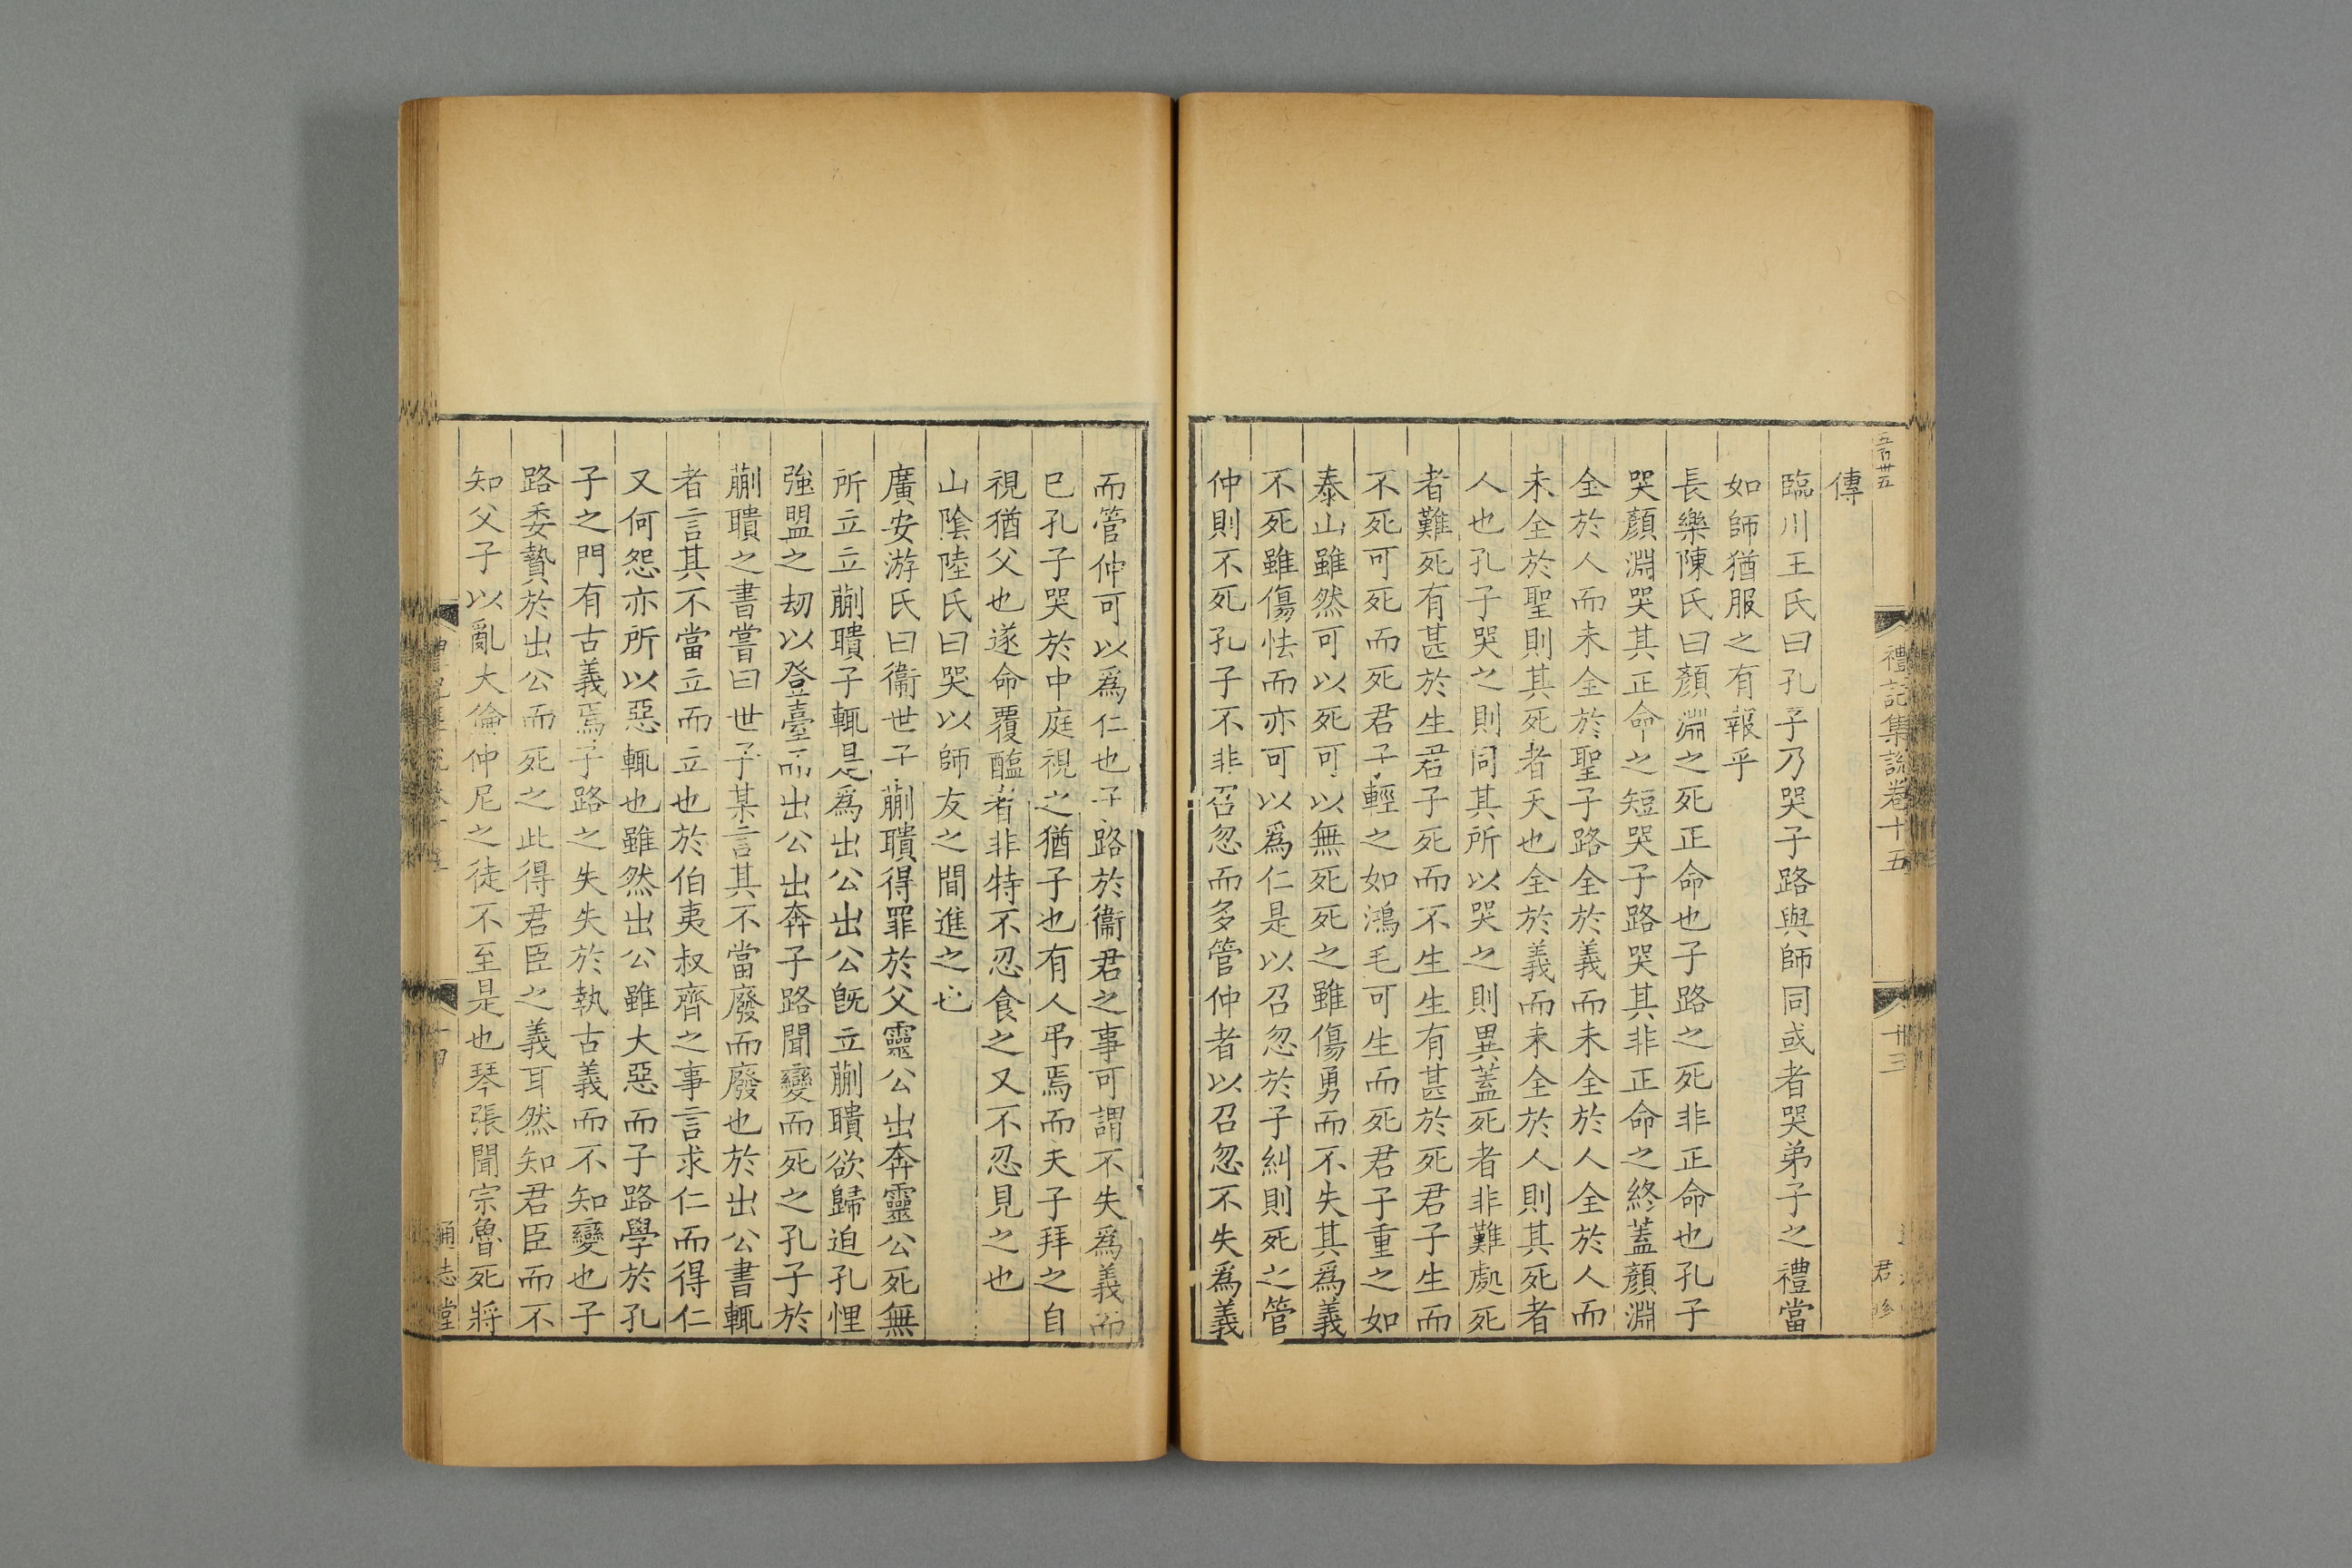 禮記集說卷十五
卅三
傳
臨川王氏曰孔子乃哭子路與師同或者哭弟子之禮當
如師猶服之有報乎
長樂陳氏曰顏淵之死正命也子路之死非正命也孔子
哭顏淵哭其正命之短哭子路哭其非正命之終蓋顏淵
全於人而未全於聖子路全於義而未全於人全於人而
未全於聖則其死者天也全於義而未全於人則其死者
人也孔子哭之則同其所以哭之則異蓋死者非難處死
者難死有甚於生君子死而不生生有甚於死君子生而
不死可死而死君子輕之如鴻毛可生而死君子重之如
泰山雖然可以死可以無死死之雖傷勇而不失其爲義
不死雖傷怯而亦可以爲仁是以召忽於子糾則死之管
仲則不死孔子不非召忽而多管仲者以召忽不失爲義
而管仲可以爲仁也子路於衞君之事可謂不失爲義而
已孔子哭於中庭視之猶子也有人弔焉而夫子拜之自
視猶父也遂命覆醢者非特不忍食之又不忍見之也
山陰陸氏曰哭以師友之間進之也
廣安游氏曰衞世子蒯聵得罪於父靈公出奔靈公死無
所立立蒯聵子輒是爲出公出公旣立蒯聵欲歸迫孔悝
強盟之刼以登臺而出公出奔子路聞變而死之孔子於
蒯聵之書嘗曰世子某言其不當廢而廢也於出公書輒
者言其不當立而立也於伯夷叔齊之事言求仁而得仁
又何怨亦所以惡輒也雖然出公雖大惡而子路學於孔
子之門有古義焉子路之失失於執古義而不知變也子
路委贄於出公而死之此得君臣之義耳然知君臣而不
知父子以亂大倫仲尼之徒不至是也琴張聞宗魯死將
通志堂